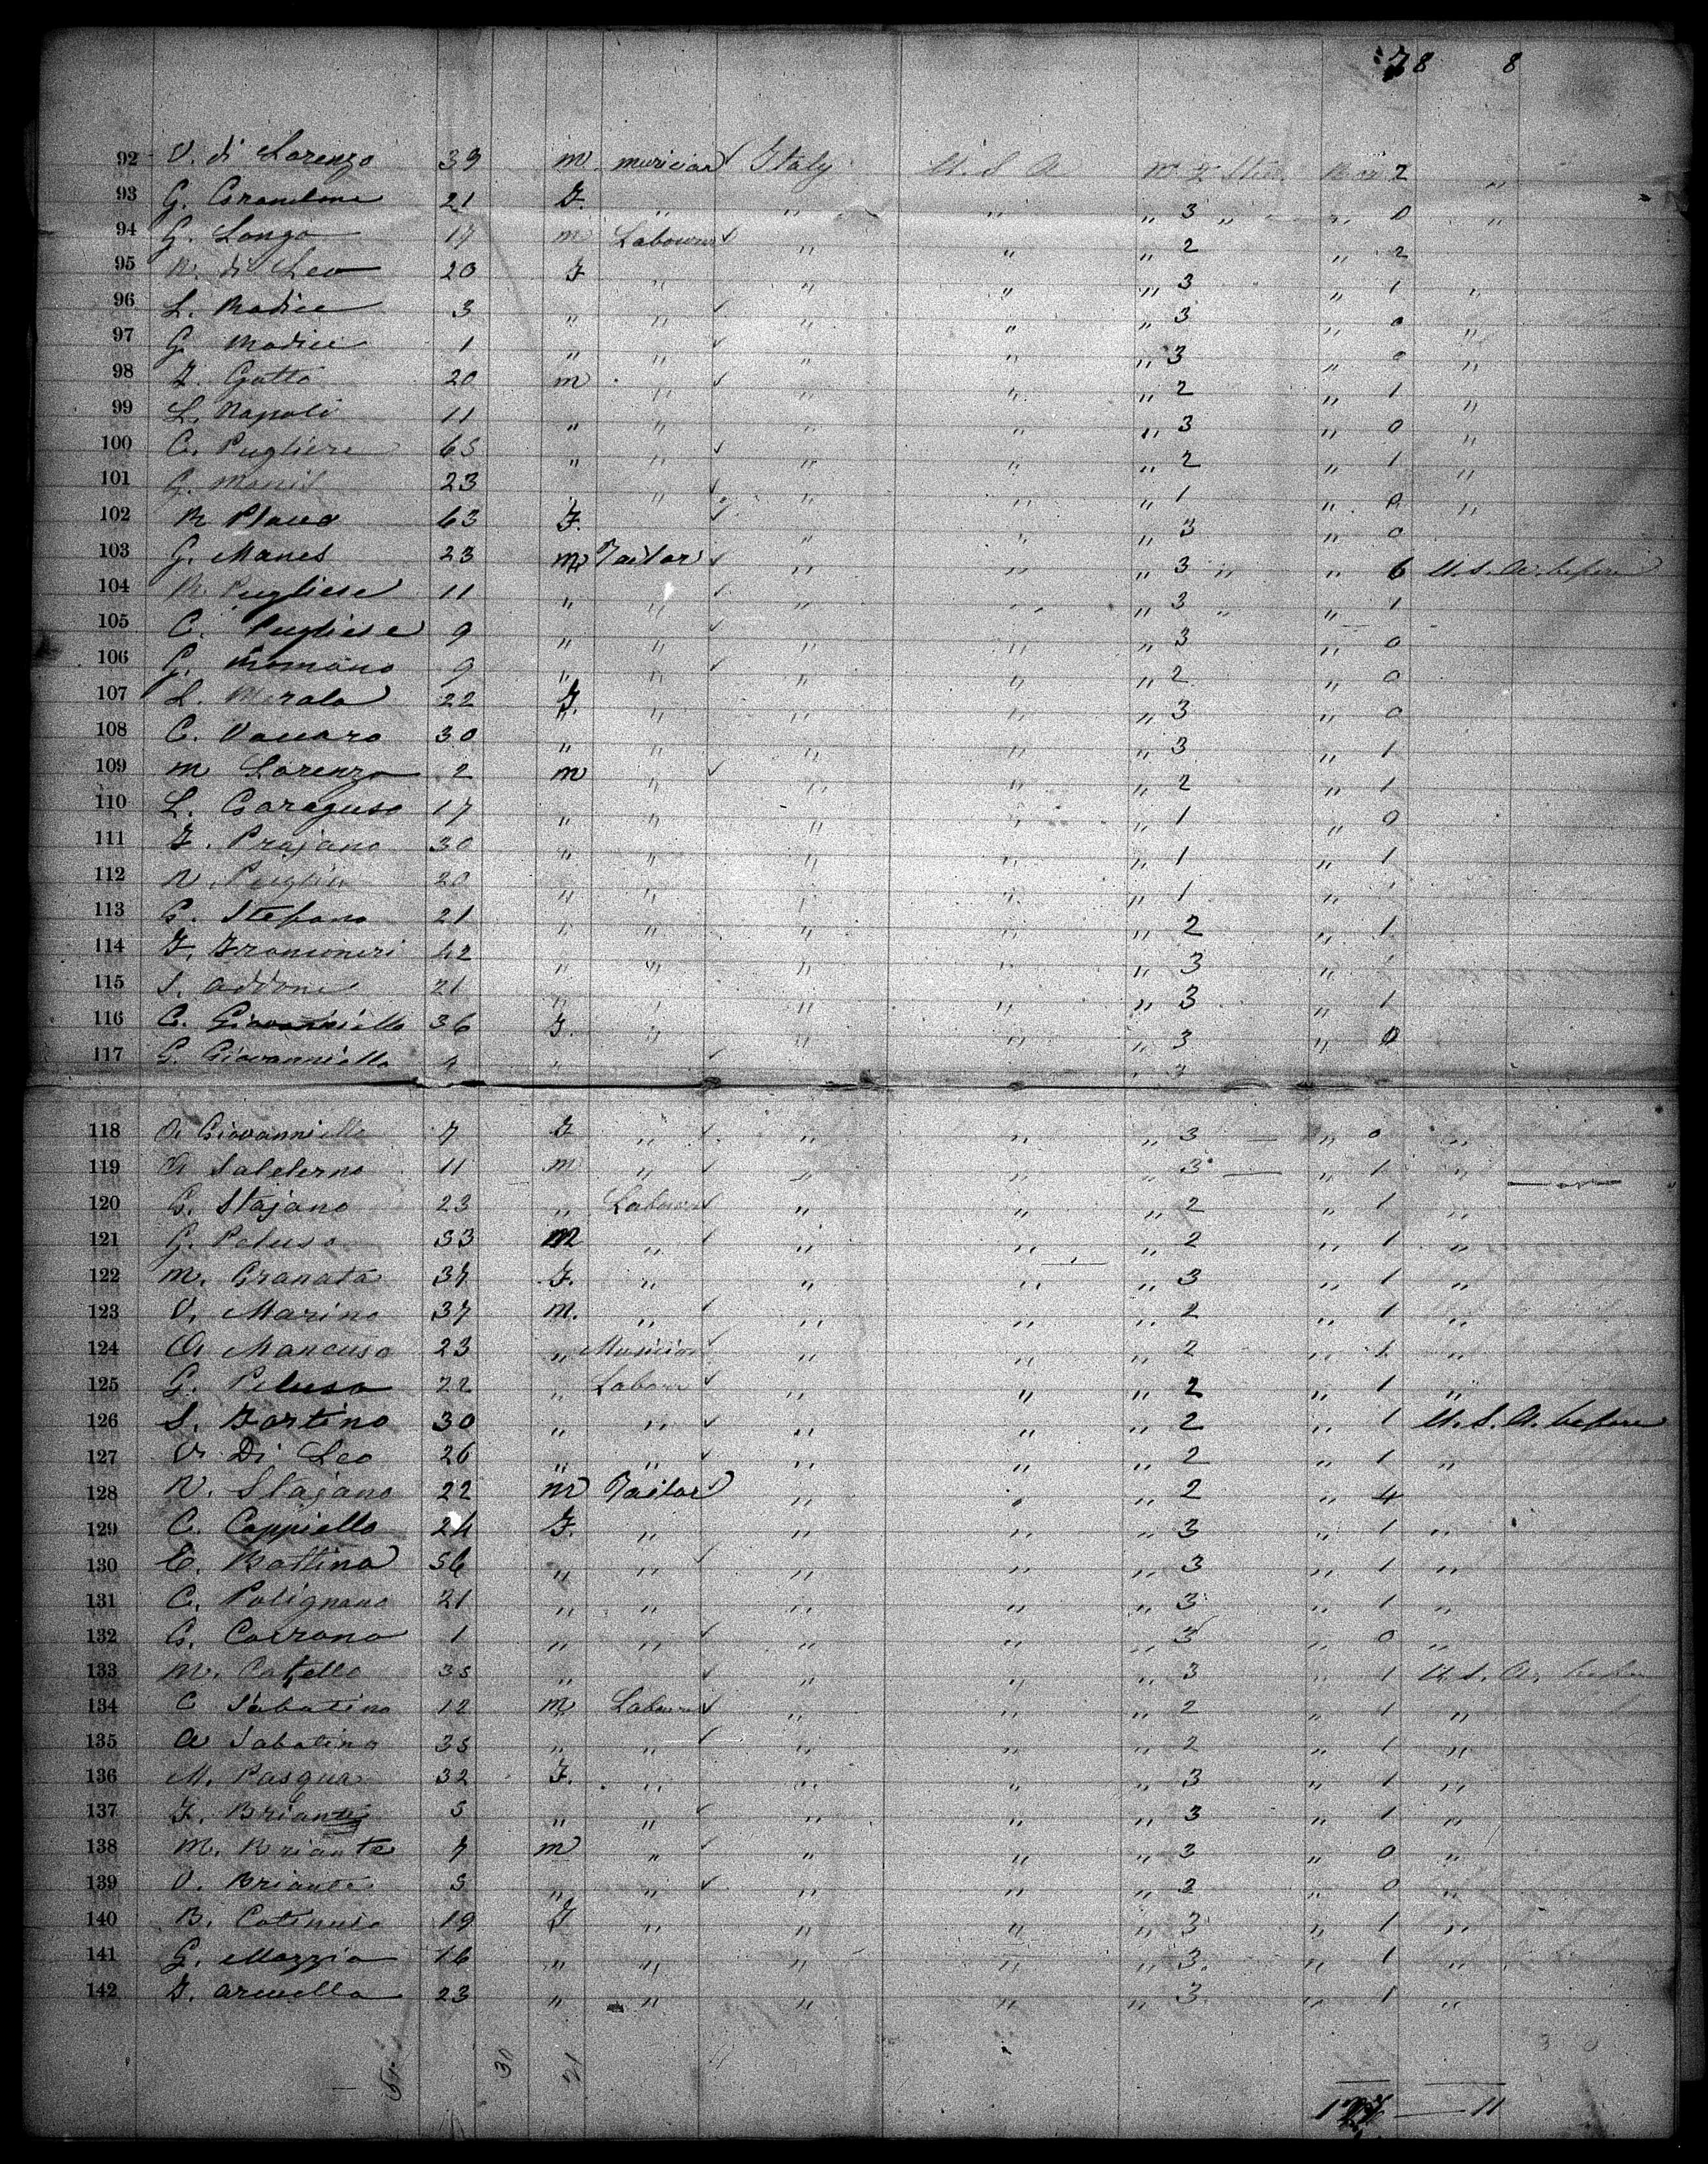 78 8
92 V. di Lorenzo 39 m. musician Italy U.S.A. No 2 Stee. Box 2 "
93 G. 21 F. " " " " 3 " " 0 "
94 G. Longo 17 m Labourer " " " 2 " 2
95 di Leo 20 F " " " " 3 " 1 "
96 L. 3 " " " " " 3 " 0 "
97 G 1 " " " " " 3 " 0 "
98 F. Gatto 20 m " " " " 2 " 1 "
99 L. Napoli 11 " " " " " 3 " 0 "
100 C. Pugliese 65 " " " " " 2 " 1 "
101 G. 23 " " " " 1 " 0 "
102 R 63 F. " " " 3 " 0
103 G. Manes 23 m Tailor " " " 3 " " 6 U.S.A. before
104 R. Pugliese 11 " " " " " 3 " " 1
105 C. Pugliese 9 " " " " " 3 " 0
106 G. Romano 9 " " " " " 2 " 0
107 L. 22 F. " " " " 3 " 0
108 C. Vaccaro 30 " " " " " 3 " 1
109 m Lorenzo 2 m " " " " 2 " 1
110 L. Caraguso 17 " " " " " 1 " 0
111 F. Prajano 30 " " " " " 1 " 1
112 N. Puglia 20 " " " " " 1 "
113 G. Stefano 21 " " " " " 2 " 1
114 F. 42 " " " " " 3 "
115 S. Addone 21 " " " " " 3 " 1
116 C. Giovanniello 36 F. " " " " 3 " 0
117 G. Giovanniello 9 " " 3
118 A. Giovanniello 7 F " " " " 3 " 0 "
119 A Salelerno 11 m " " " " 3 " 1 "
120 G. Stajano 23 " Labourer " " " 2 " 1 "
121 G. Peluso 33 M " " " " 2 " 1 "
122 m. Granata 37 F. " " " " 3 " 1 "
123 V. Marino 37 m. " " " " 2 " 1 "
124 A Mancuso 23 " Musician " " " 2 " 1 "
125 G. Peluso 22 " Labour " " " 2 " 1 "
126 S. Fortino 30 " " " " " 2 " 1 U.S.A. before
127 V. Di Leo 26 " " " " " 2 " 1 "
128 N. Stajano 22 m Tailor " " 2 " 4
129 C. Cappiello 24 F. " " " " 3 " 1 "
130 C. Bottino 56 " " " " " 3 " 1 "
131 C. Polignano 21 " " " " " 3 " 1 "
132 G. Corrono 1 " " " " " 3 " 0 "
133 m. Catello 35 " " " " 3 " 1 U.S.A. before
134 C Sabatino 12 m Labourer " " " 2 " 1 "
135 A Sabatino 35 " " " " " 2 " 1 "
136 M. Pasqua 32 F. " " " " 3 " 1 "
137 F. Briante 5 " " " " " 3 " 1 "
138 M. Briante 7 m " " " " 3 " 0 "
139 V. Briante 3 " " " " " 2 " 0 "
140 B. 19 F " " " " 3 " 1 "
141 G. Mazzia 16 " " " " " 3. " 1 "
142 F. 23 " " " " " 3 " 1 "
30 21
11